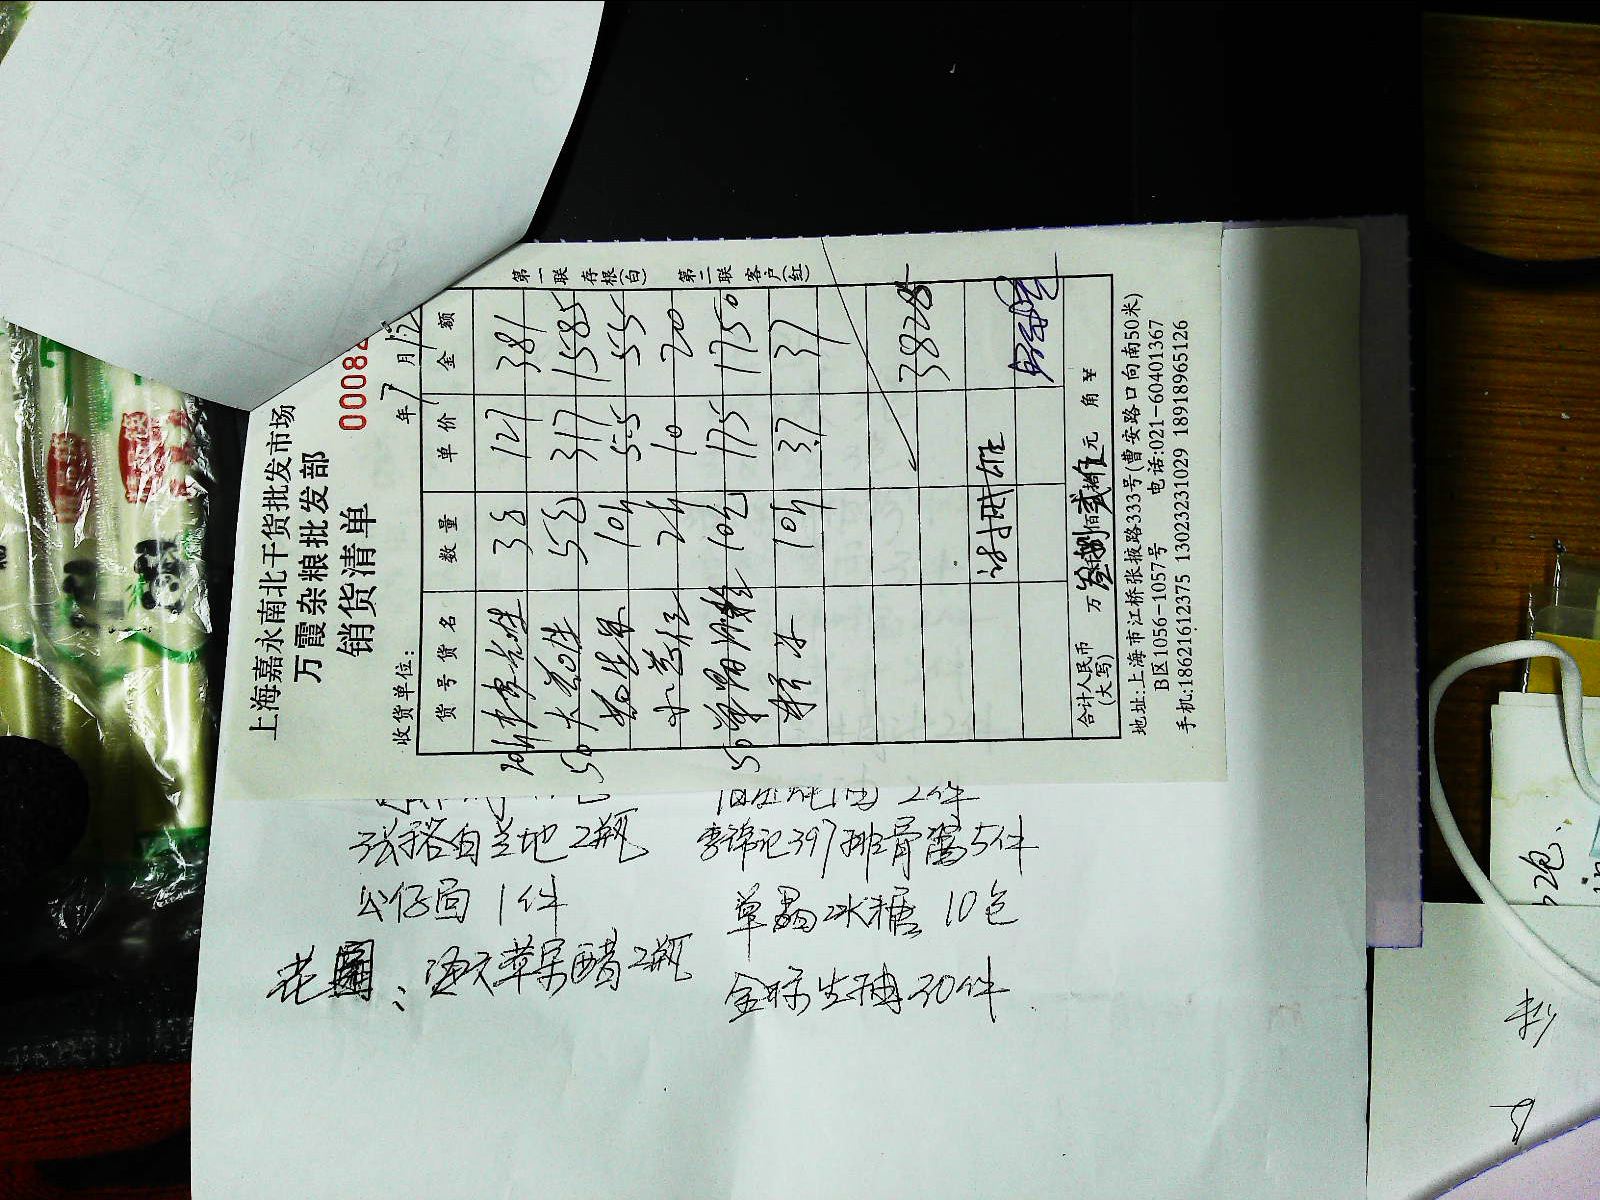 上海嘉永南北干货批发市场
万霞杂粮批发部
销货清单
00082
收货单位：
年 7 月 12
货号 货名 数量 单价 金额
127 381
50 大 5包 317 1585
10斤 5.5 55
2斤 10 20
50 单晶冰糖 10包 175 1750
10斤 3.7 37
3828
合计人民币(大写) 万叁仟捌佰贰拾 元 角 ¥
地址:上海市江桥张掖路333号(曹安路口向南50米)
B区1056-1057号 电话:021-60401367
手机:18621612375 13023231029 18918965126
第一联 存根(白) 第二联 客户(红)
2件
张裕白兰地 2瓶
李锦记397排骨酱5件
公仔面 1件
单晶冰糖 10包
花园：海天苹果醋2瓶
金标生抽30件
2包